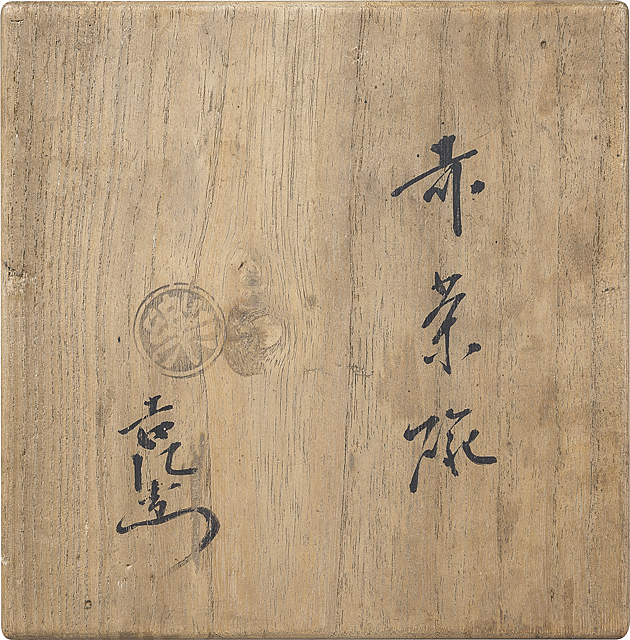 赤茶碗
樂
吉左衛門